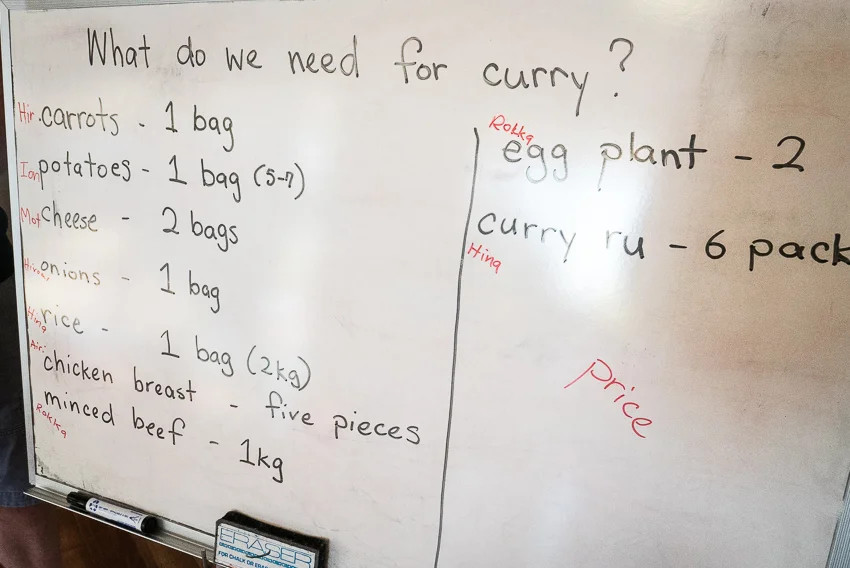 What do we need for curry?
Hir. carrots - 1 bag
Ian potatoes - 1 bag (5-7)
Mot cheese - 2 bags
onions - 1 bag
Hina rice - 1 bag (2kg)
Airi chicken breast - five pieces
minced beef - 1kg
Rokka
Rokka
egg plant - 2
curry ru - 6 pack
Hina
price
ERASER
FOR CHALK OR